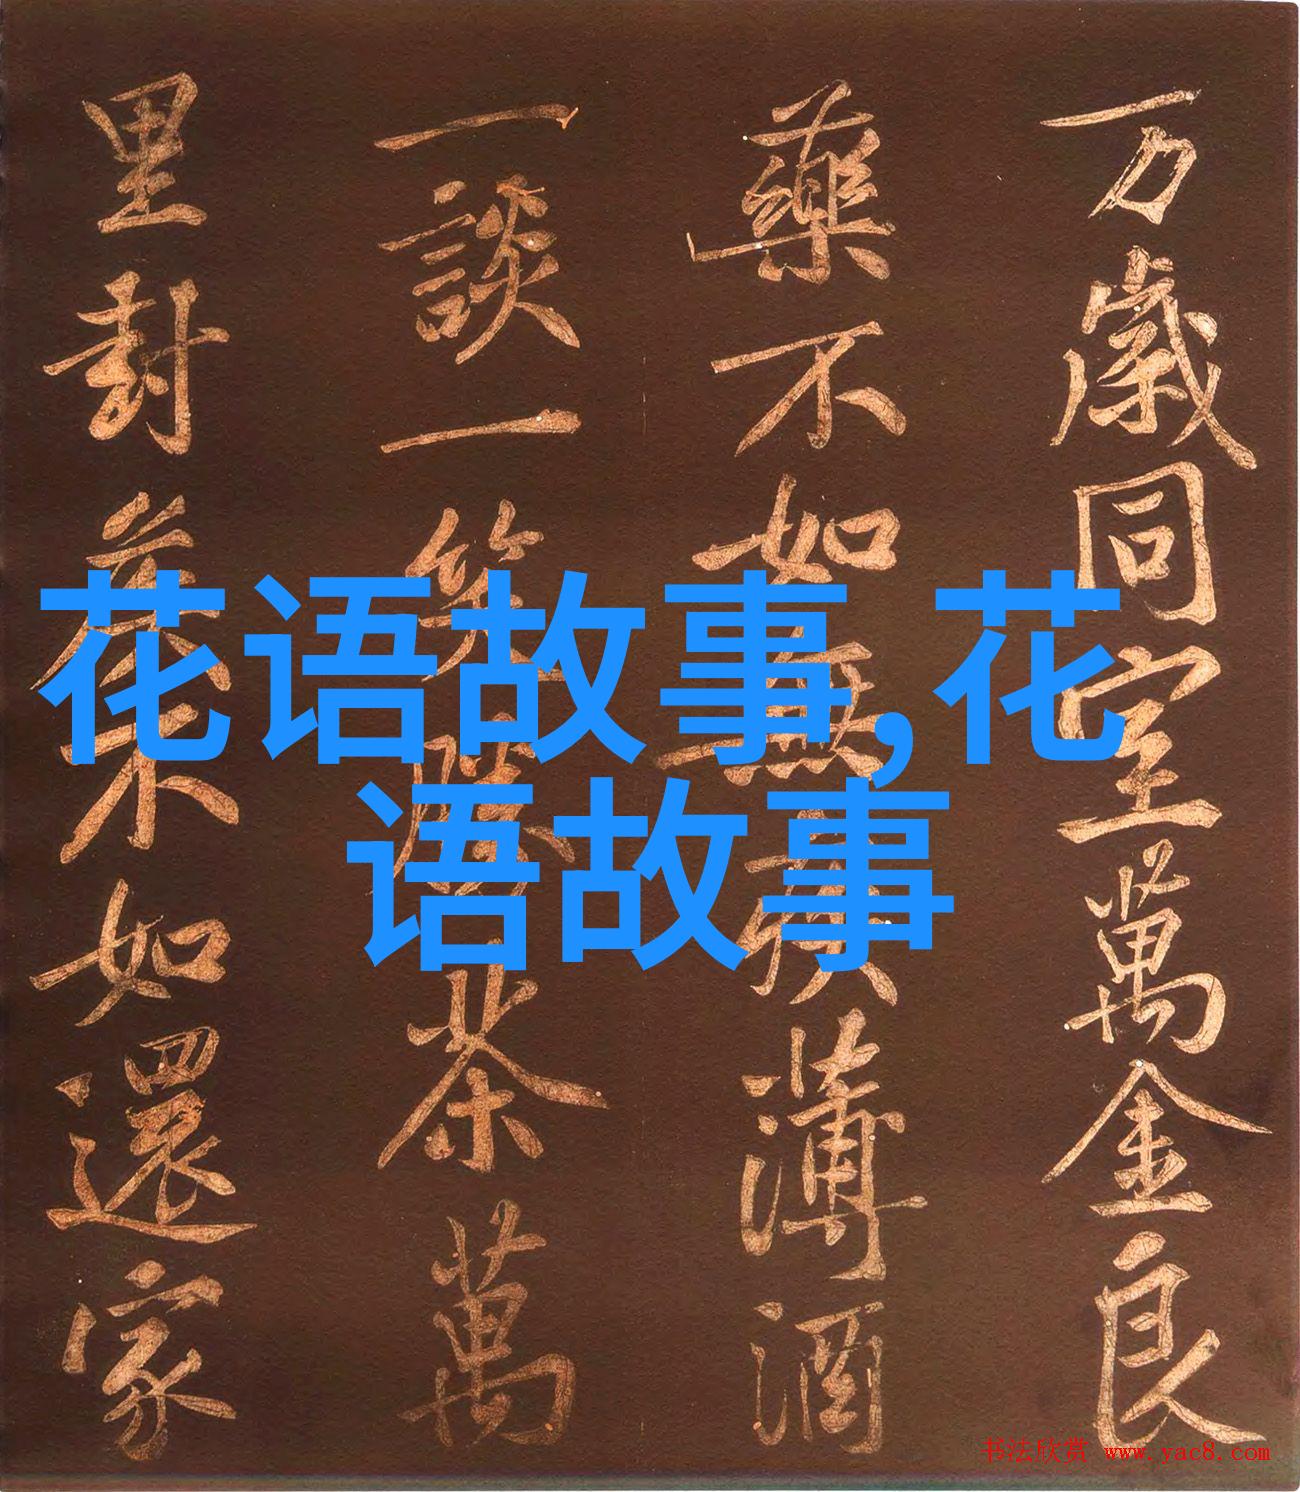 万歲同室萬金良
藥不如無疾薄酒
一談一笑勝茶萬
里封侯不如還家
花语故事,花
语故事
书法欣赏 www.yac8.com